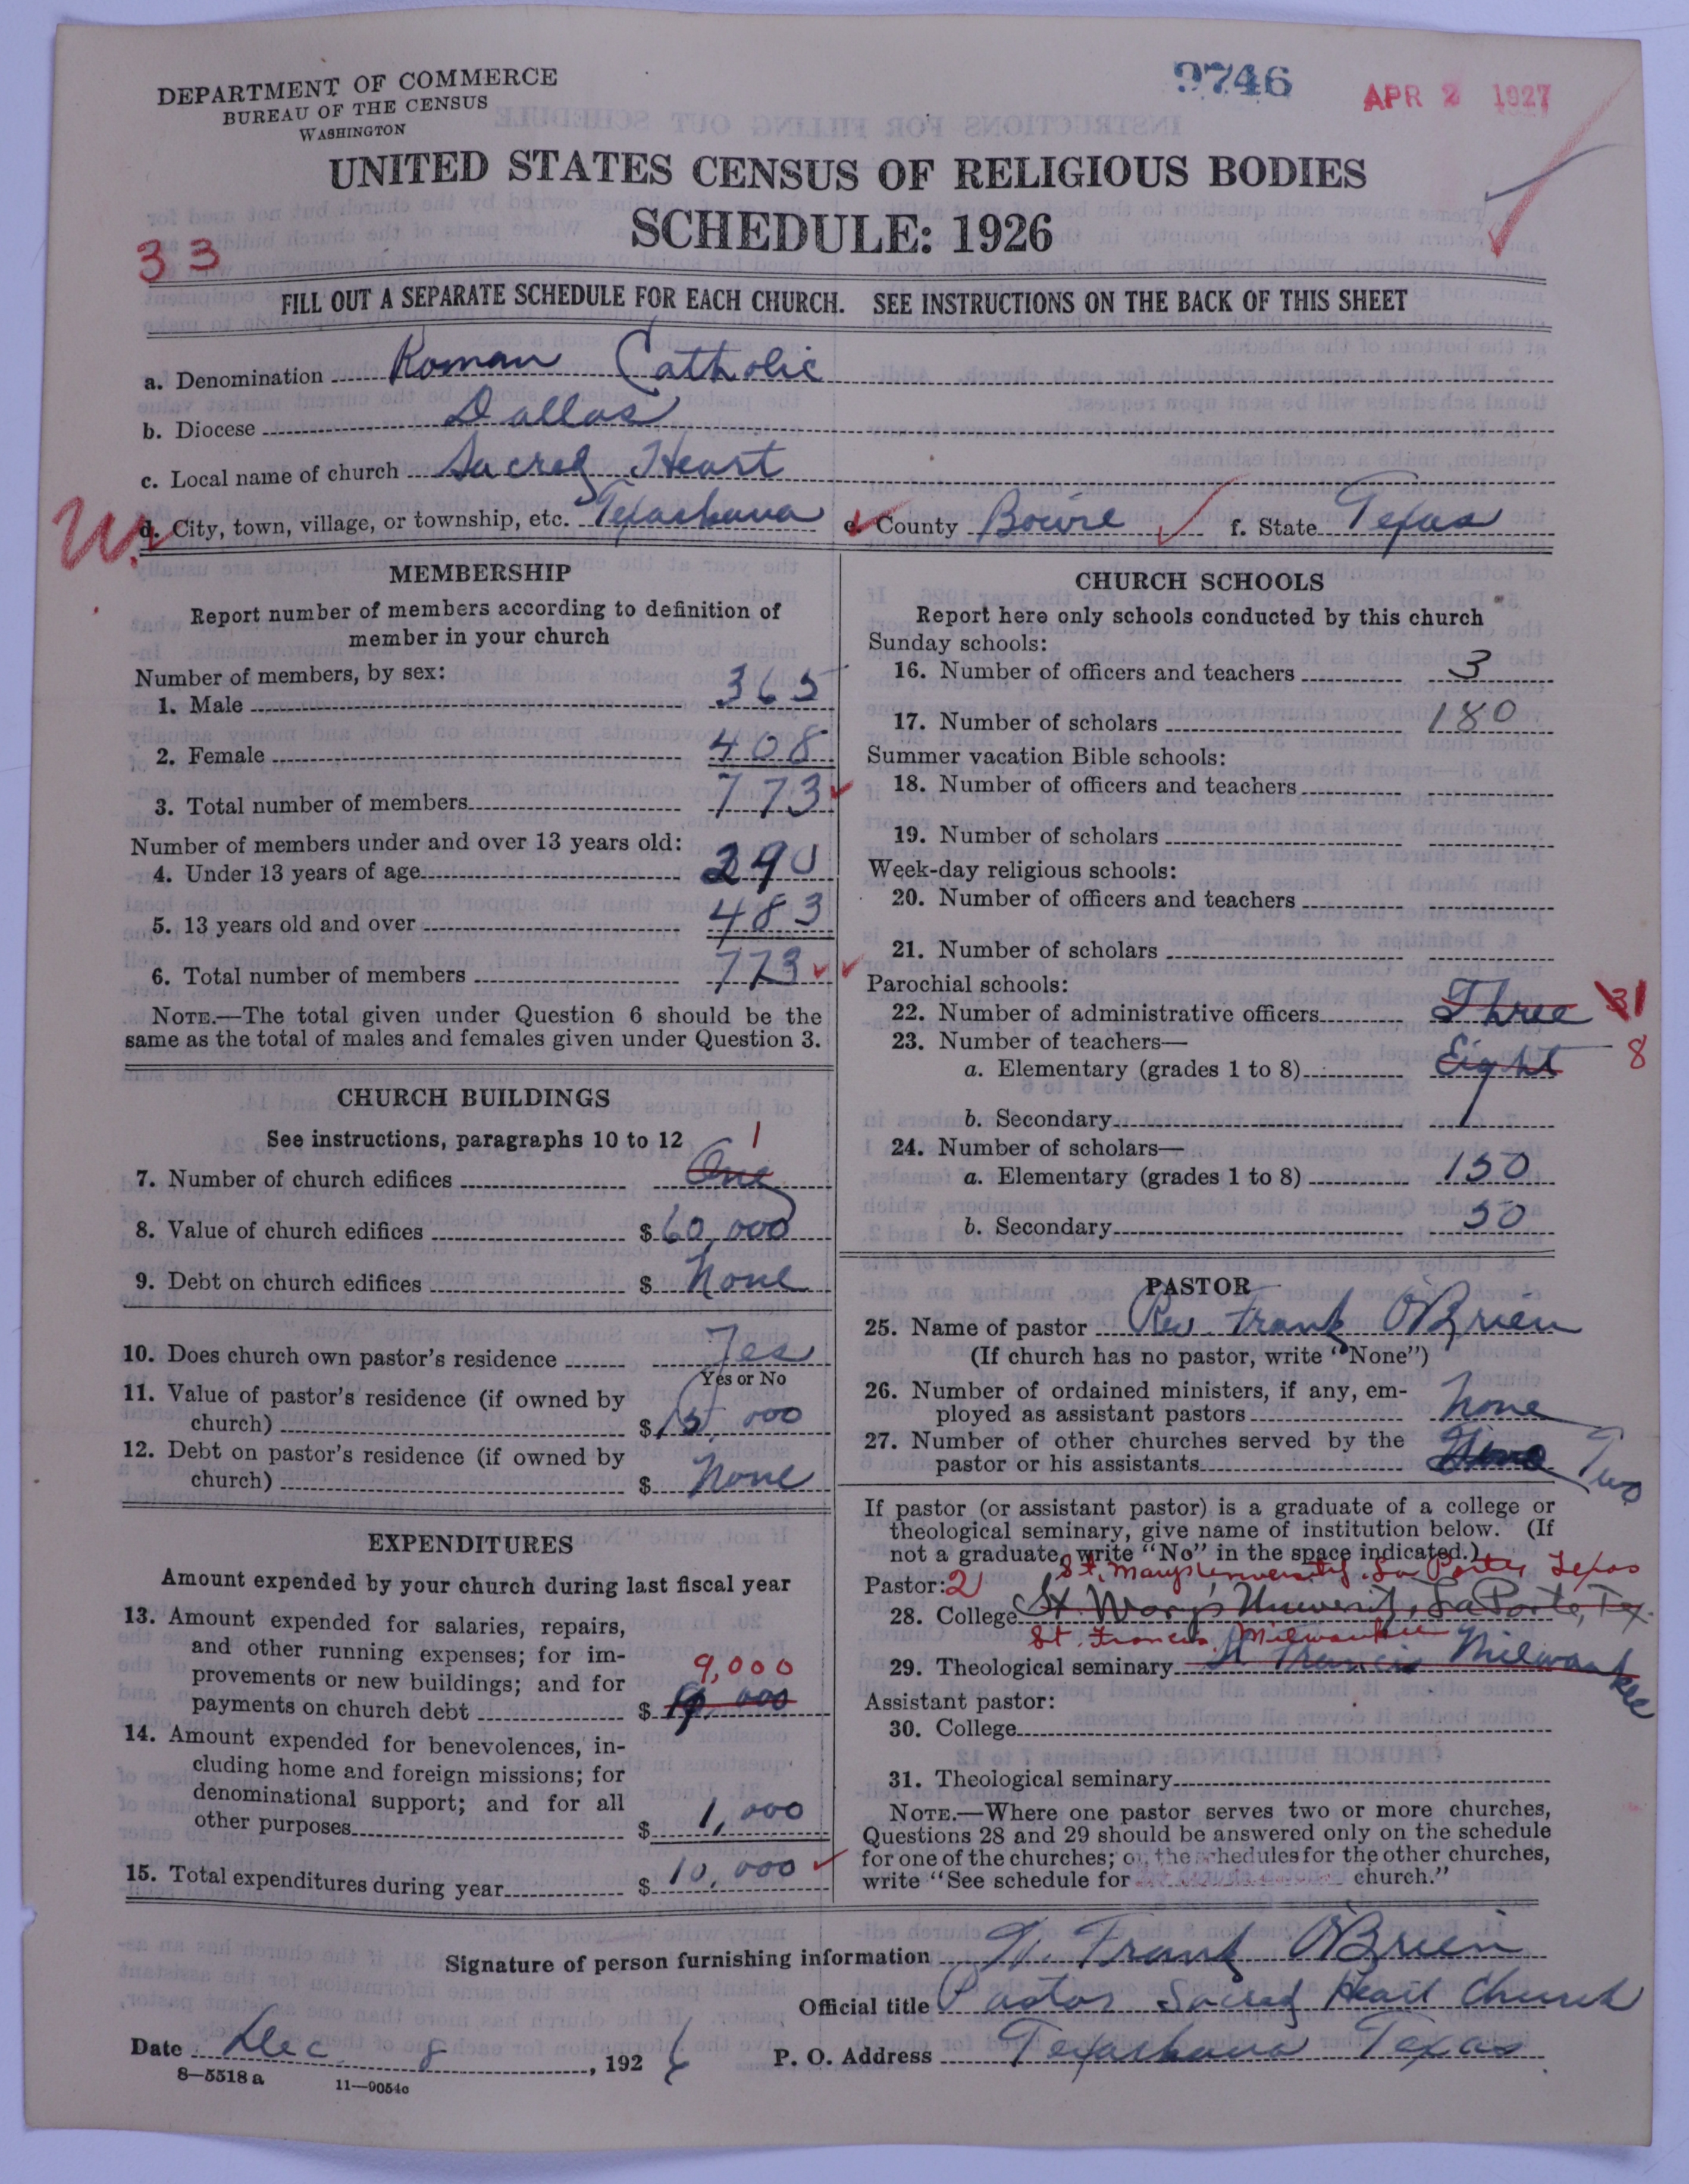 DEPARTMENT OF COMMERCE
BUREAU OF THE CENSUS
WASHINGTON
9746
APR 2 1927
UNITED STATES CENSUS OF RELIGIOUS BODIES
SCHEDULE: 1926
33
FILL OUT A SEPARATE SCHEDULE FOR EACH CHURCH. SEE INSTRUCTIONS ON THE BACK OF THIS SHEET
a. Denomination Roman Catholic
b. Diocese Dallas
c. Local name of church Sacred Heart
d. City, town, village, or township, etc. Texarkana e. County Bowie f. State Texas
MEMBERSHIP
Report number of members according to definition of
member in your church
Number of members, by sex:
1. Male 365
2. Female 408
3. Total number of members 773
Number of members under and over 13 years old:
4. Under 13 years of age 290
5. 13 years old and over 483
6. Total number of members 773
NOTE.—The total given under Question 6 should be the
same as the total of males and females given under Question 3.
CHURCH BUILDINGS
See instructions, paragraphs 10 to 12
1
7. Number of church edifices One
8. Value of church edifices $ 60,000
9. Debt on church edifices $ None
10. Does church own pastor's residence Yes
Yes or No
11. Value of pastor's residence (if owned by
church) $ 15,000
12. Debt on pastor's residence (if owned by
church) $ None
EXPENDITURES
Amount expended by your church during last fiscal year
13. Amount expended for salaries, repairs,
and other running expenses; for im-
provements or new buildings; and for 9,000
payments on church debt $ 9,000
14. Amount expended for benevolences, in-
cluding home and foreign missions; for
denominational support; and for all
other purposes $ 1,000
15. Total expenditures during year $ 10,000
CHURCH SCHOOLS
Report here only schools conducted by this church
Sunday schools:
16. Number of officers and teachers 3
17. Number of scholars 180
Summer vacation Bible schools:
18. Number of officers and teachers
19. Number of scholars
Week-day religious schools:
20. Number of officers and teachers
21. Number of scholars
Parochial schools:
22. Number of administrative officers Three 31
23. Number of teachers—
a. Elementary (grades 1 to 8) Eight 8
b. Secondary
24. Number of scholars—
a. Elementary (grades 1 to 8) 150
b. Secondary 50
PASTOR
25. Name of pastor Rev. Frank O'Brien
(If church has no pastor, write "None")
26. Number of ordained ministers, if any, em-
ployed as assistant pastors None
27. Number of other churches served by the
pastor or his assistants Two
If pastor (or assistant pastor) is a graduate of a college or
theological seminary, give name of institution below. (If
not a graduate, write "No" in the space indicated.)
St. Mary's University, La Porte, Texas
Pastor: 2
28. College St. Mary's University, La Porte, Tex.
St. Francis, Milwaukee
29. Theological seminary St Francis Milwaukee
Assistant pastor:
30. College
31. Theological seminary
NOTE.—Where one pastor serves two or more churches,
Questions 28 and 29 should be answered only on the schedule
for one of the churches; on the schedules for the other churches,
write "See schedule for church."
Signature of person furnishing information W. Frank O'Brien
Official title Pastor Sacred Heart Church
Date Dec 8, 1926 P. O. Address Texarkana Texas
8—5518a 11—9054c